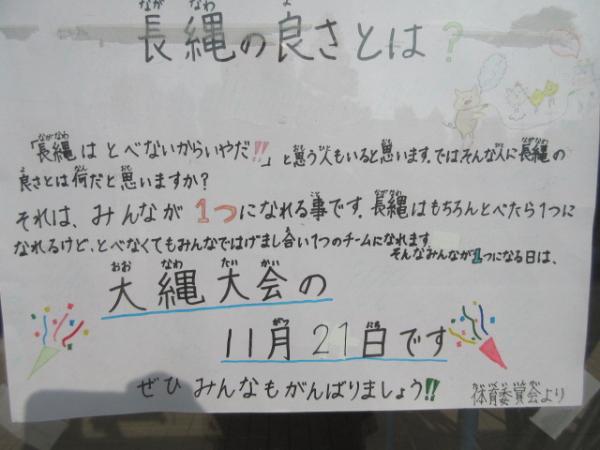 長縄の良さとは?
「長縄はとべないからいやだ!!」と思う人もいると思います。ではそんな人に長縄の
良さとは何だと思いますか?
それは、みんなが1つになれる事です。長縄はもちろんとべたら1つに
なれるけど、とべなくてもみんなではげまし合い1つのチームになれます
そんなみんなが1つになる日は、
大縄大会の
11月21日です
ぜひみんなもがんばりましょう!!
体育委員会より